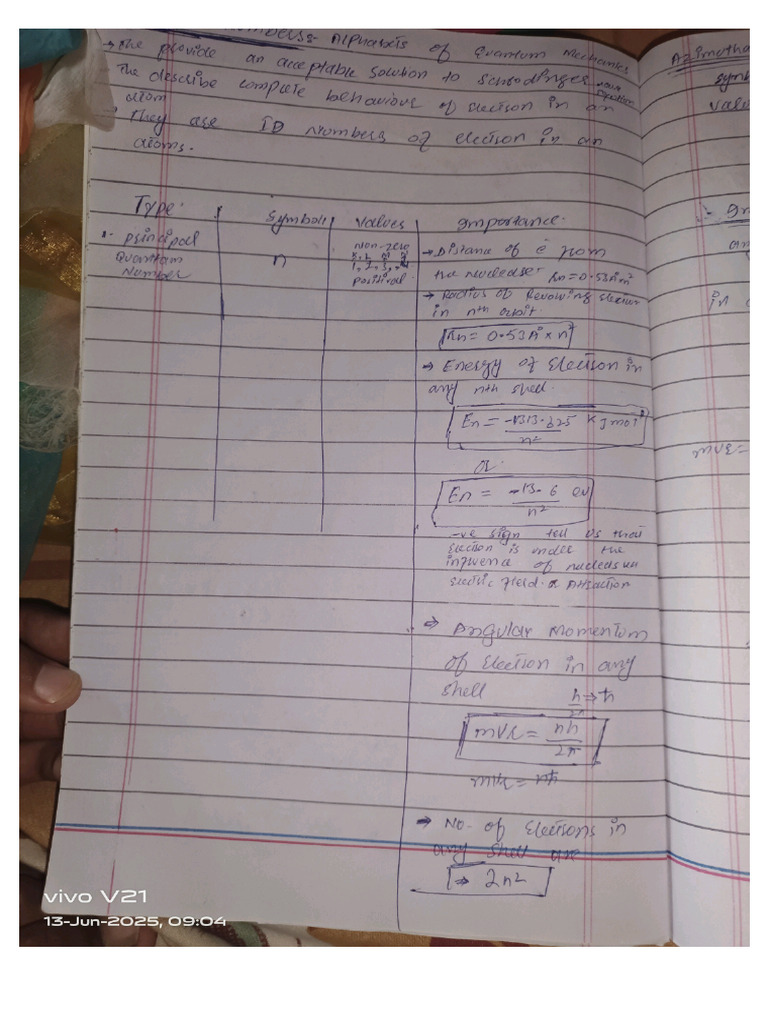 Numbers:- Alphabets of Quantum Mechanics
→ The provide an acceptable solution to Schrodingers wave Equation
The describe complete behaviour of electron in an
atom
→ They are ID Numbers of election in an
atoms.
Type. Symbol Values Importance.
1. principal
Quantum
Number
n
non-zero
K, L, M, N
1, 2, 3, 4
positive
→ Distance of e⁻ from
the nucleus
Rn = 0.53 A° n²
→ Radius of Revolving electron
in nth orbit.
Rn = 0.53A° × n²
→ Energy of Electron in
any nth shell.
En = -1313.325 KJ mol⁻¹
n²
or.
En = -13.6 ev
n²
-ve sign tell us that
Electron is under the
influence of nucleus
electric field Attraction
→ Angular Momentum
Of Electron in any
shell
h/2π = ħ
mvr = nh
2π
mvr = nħ
→ No. of Electrons in
any shell are
→ 2n²
Azimutha
Symb
Valu
Im
an
in
mvr =
vivo V21
13-Jun-2025, 09:04